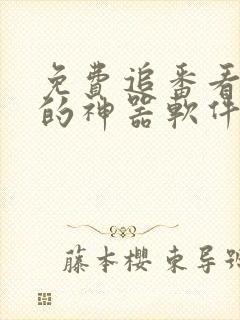 免費追番看
的神器軟件
藤本櫻 東导